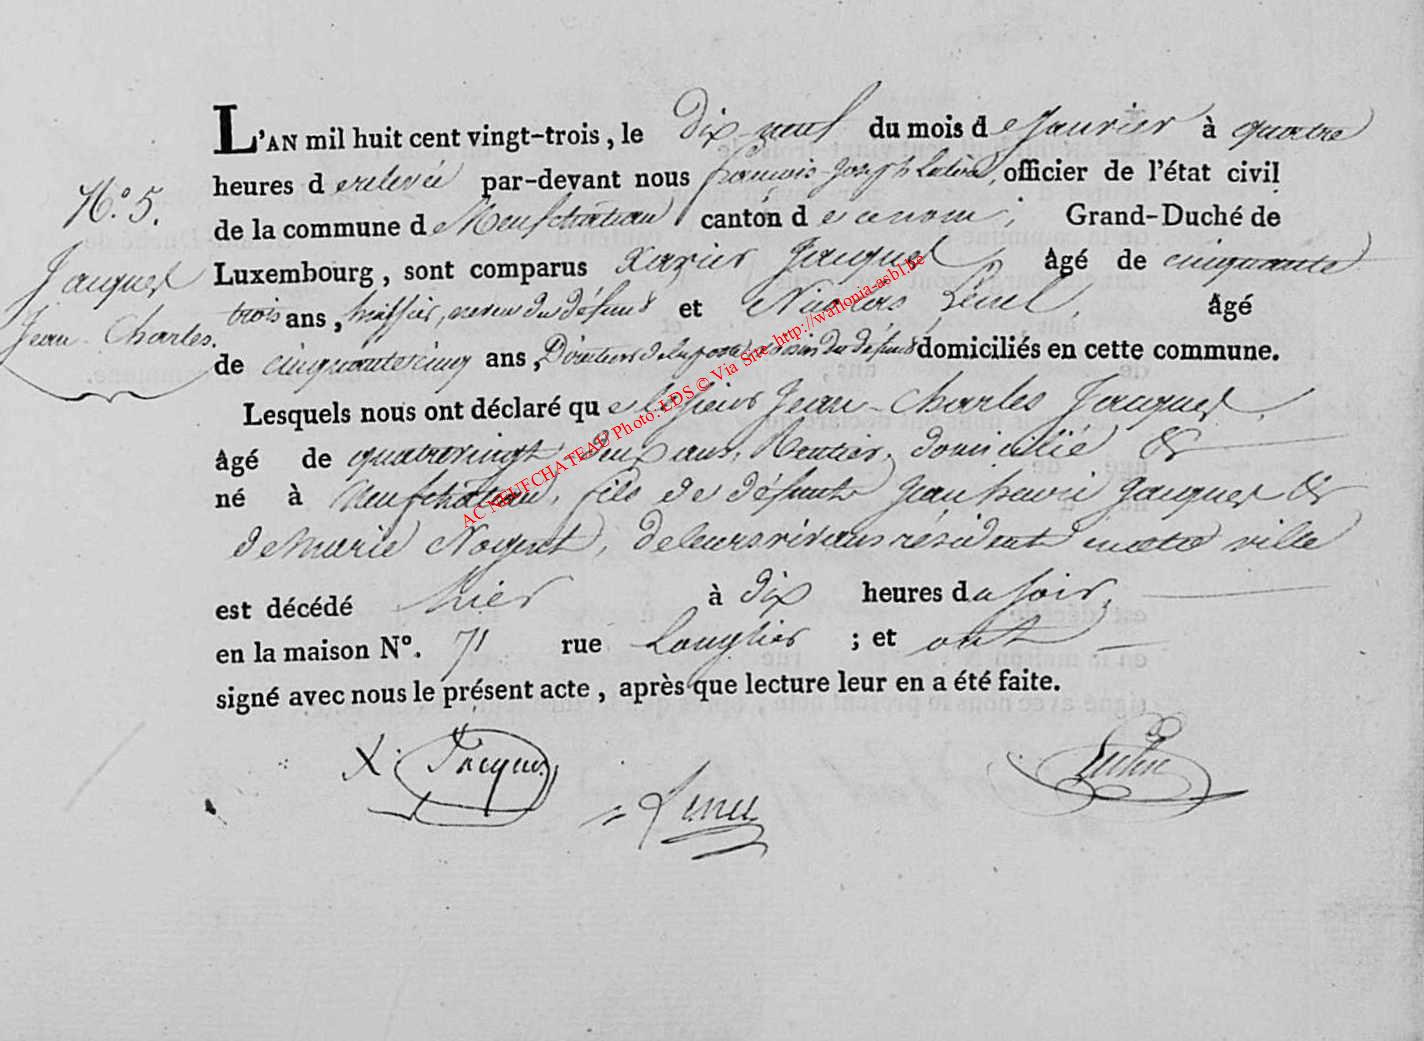 L'AN mil huit cent vingt-trois, le Dix neuf du mois de Janvier à quatre
heures de relevée par-devant nous françois-Joseph, officier de l'état civil
N.º 5.
de la commune de Neufchâteau canton de ce nom, Grand-Duché de
Jacques
Luxembourg, sont comparus Xavier Jacques, âgé de cinquante
Jean-Charles.
trois ans, huissier, neveu du défunt et Nicolas, âgé
de cinquantecinq ans, Directeur de la poste, voisin du défunt domiciliés en cette commune.
Lesquels nous ont déclaré que le sieur Jean-Charles Jacques,
âgé de quatrevingt-deux ans, Rentier, domicilié &
né à Neufchâteau, fils de défunts Jean henri Jacques &
de marie Nogent, de leurs vivans résident en cette ville
est décédé hier à dix heures du soir,
en la maison Nº. 71 rue Longlier ; et ont
signé avec nous le présent acte, après que lecture leur en a été faite.
X. Jacques
AC NEUFCHATEAU Photo: LDS © Via Site http://wallonia-asbl.be